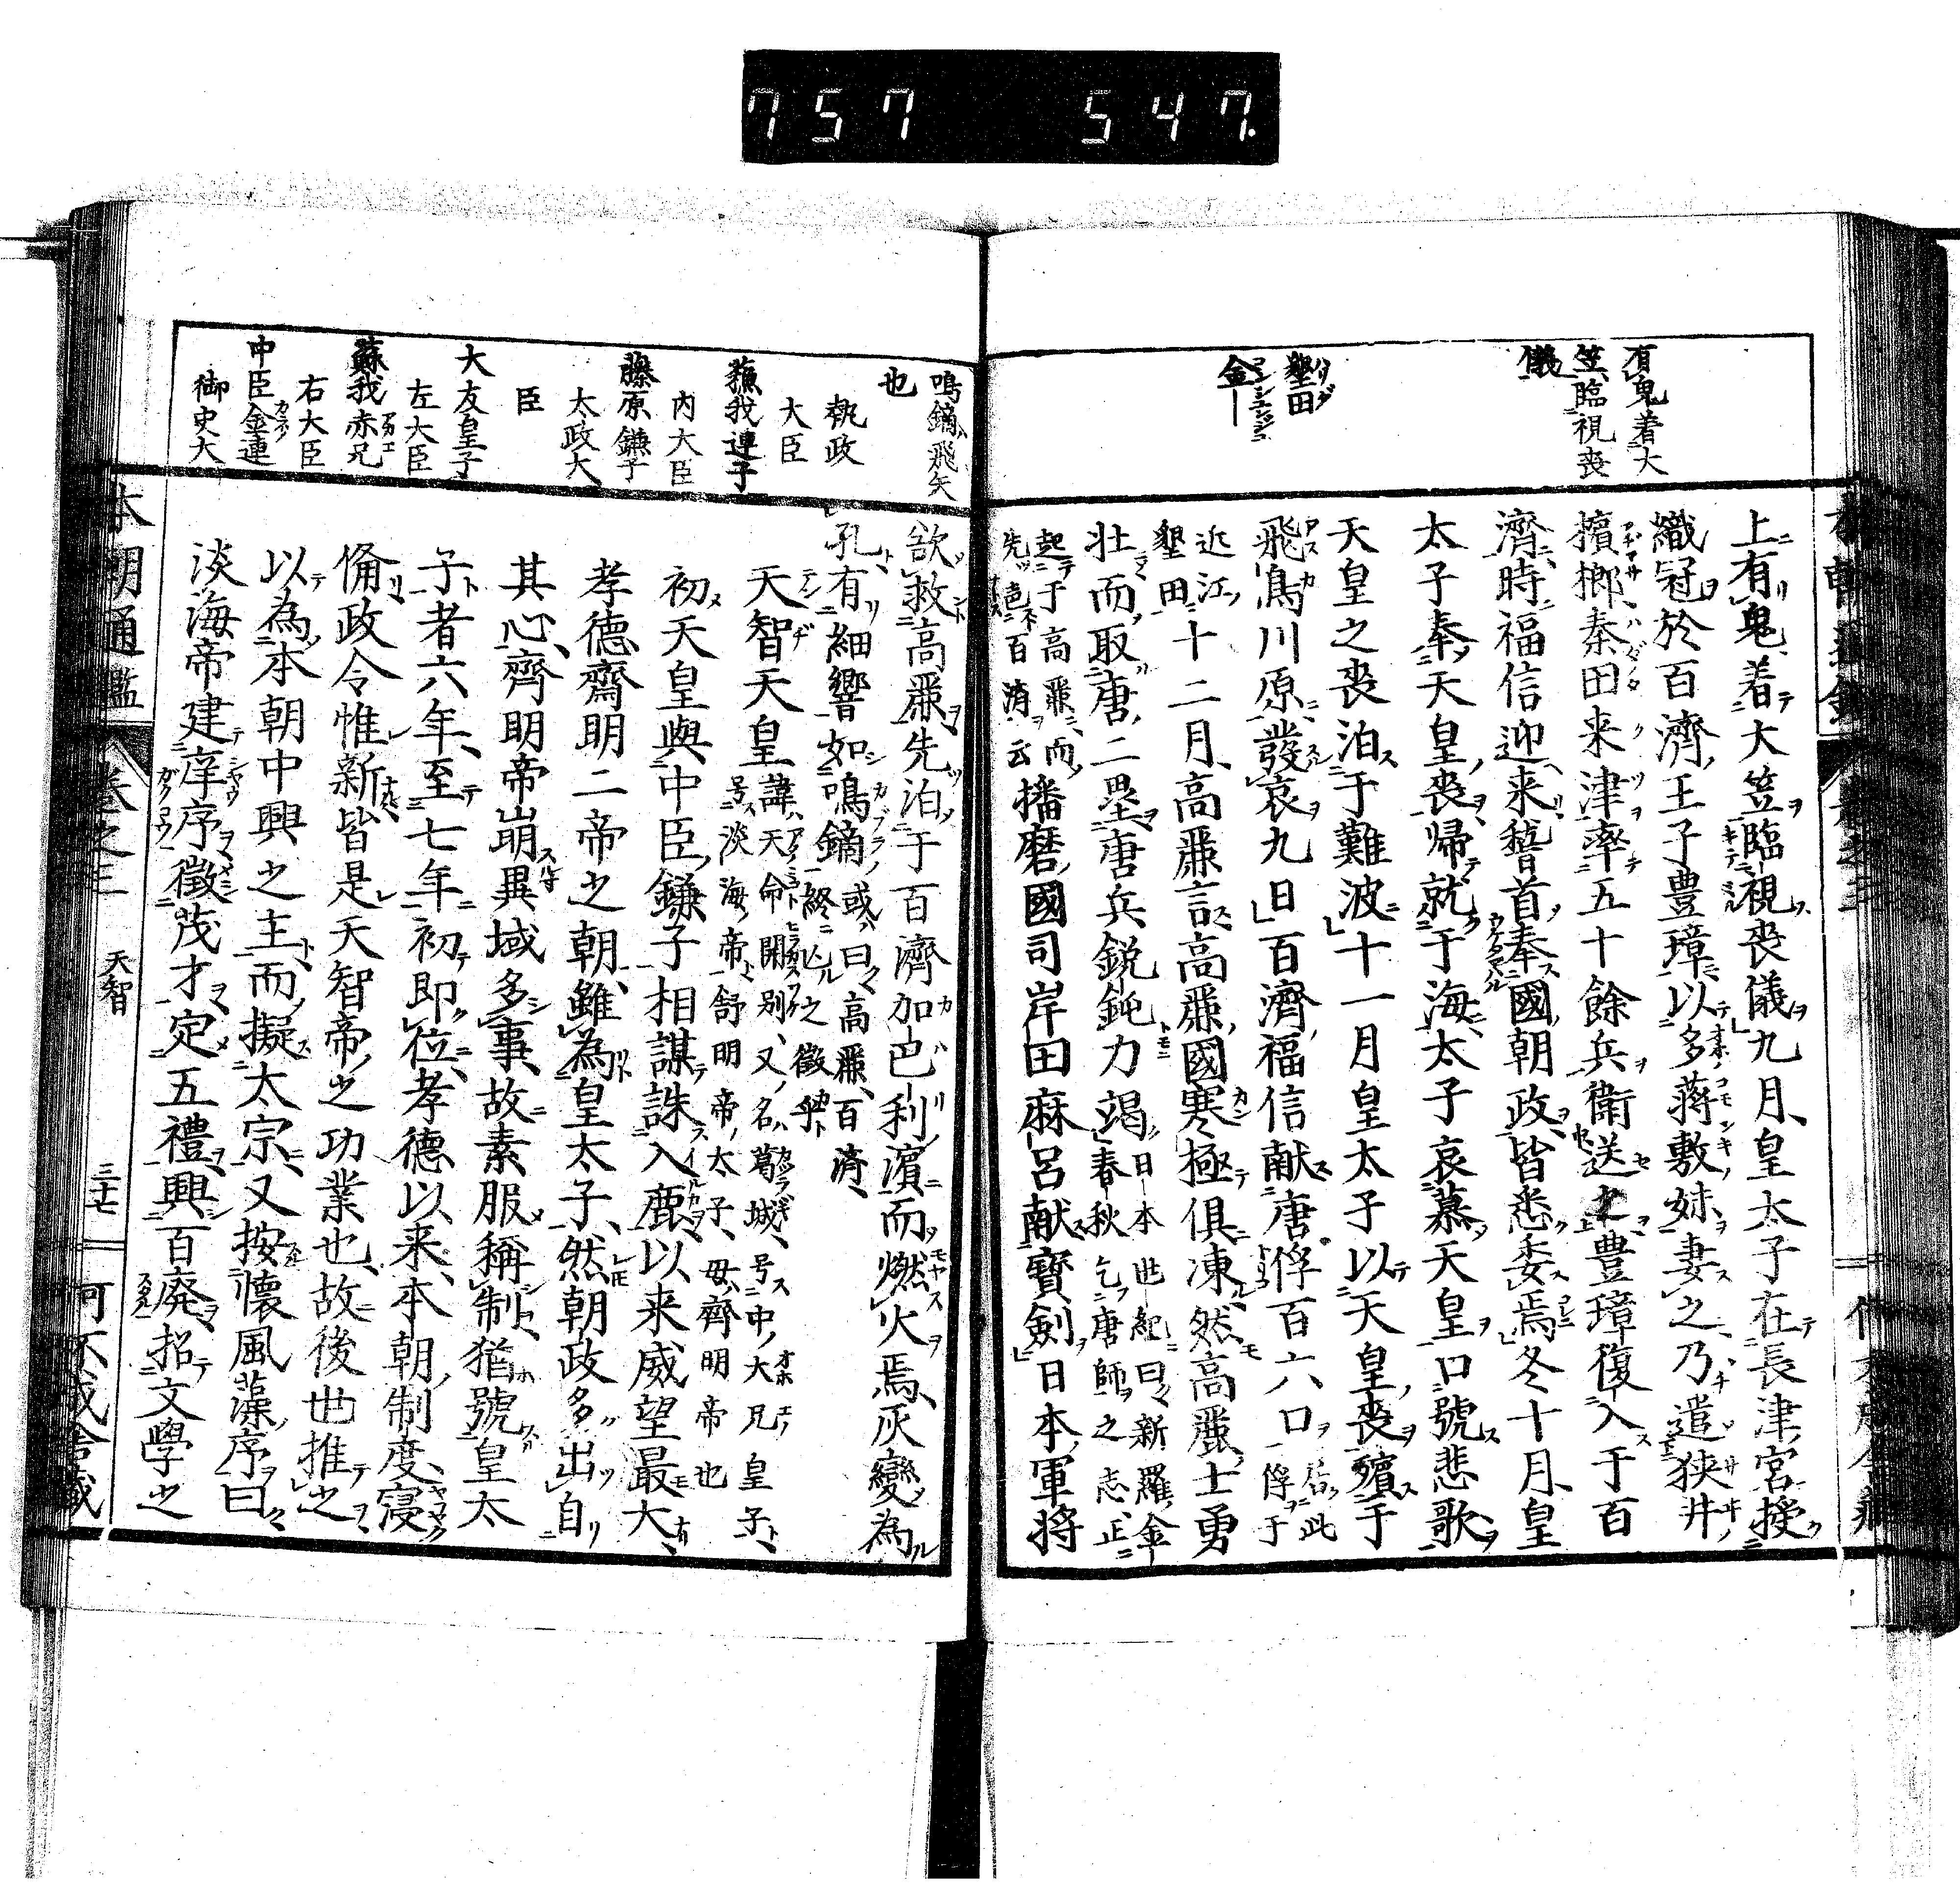 757 547.
有鬼着大
笠臨視喪
儀
墾田
金
上有鬼着大笠臨視喪儀九月皇太子在長津宮授
織冠於百濟王子豊璋以多蒋敷妹妻之乃遣狭井
檳榔秦田来津率五十餘兵衛送之豊璋復入于百
濟時福信迎来稽首奉國朝政皆悉委焉冬十月皇
太子奉天皇喪帰就于海太子哀慕天皇口號悲歌
天皇之喪泊于難波十一月皇太子以天皇喪殯于
飛鳥川原發哀九日百濟福信献唐俘百六口居此俘于
近江墾田十二月高麗言高麗國寒極俱凍然高麗士勇
壮而取唐二塁唐兵鋭鈍力竭日本世紀曰新羅金春秋乞唐師之志正
起于高麗而先邑百濟云播磨國司岸田麻呂献寶劍日本軍将
鳴鏑飛矢
也
執政
大臣
蘓我連子
内大臣
藤原鎌子
太政大
臣
大友皇子
左大臣
蘇我赤兄
右大臣
中臣金連
御史大
欲救高麗先泊于百濟加巴利濱而燃火焉灰變為
孔有細響如鳴鏑或曰高麗百濟終亡之徴乎
天智天皇諱天命開别又名葛城号中大兄皇子
号淡海帝舒明帝太子母齊明帝也
初天皇與中臣鎌子相謀誅入鹿以来威望最大
孝德齋明二帝之朝雖為皇太子然朝政多出自
其心齊明帝崩異域多事故素服稱制猶號皇太
子者六年至七年初即位孝德以来本朝制度寖
備政令惟新皆是天智帝之功業也故後世推之
以為本朝中興之主而擬太宗又按懷風藻序曰
淡海帝建庠序徴茂才定五禮興百廃招文學之
本朝通鑑 卷之三 天智 三十七